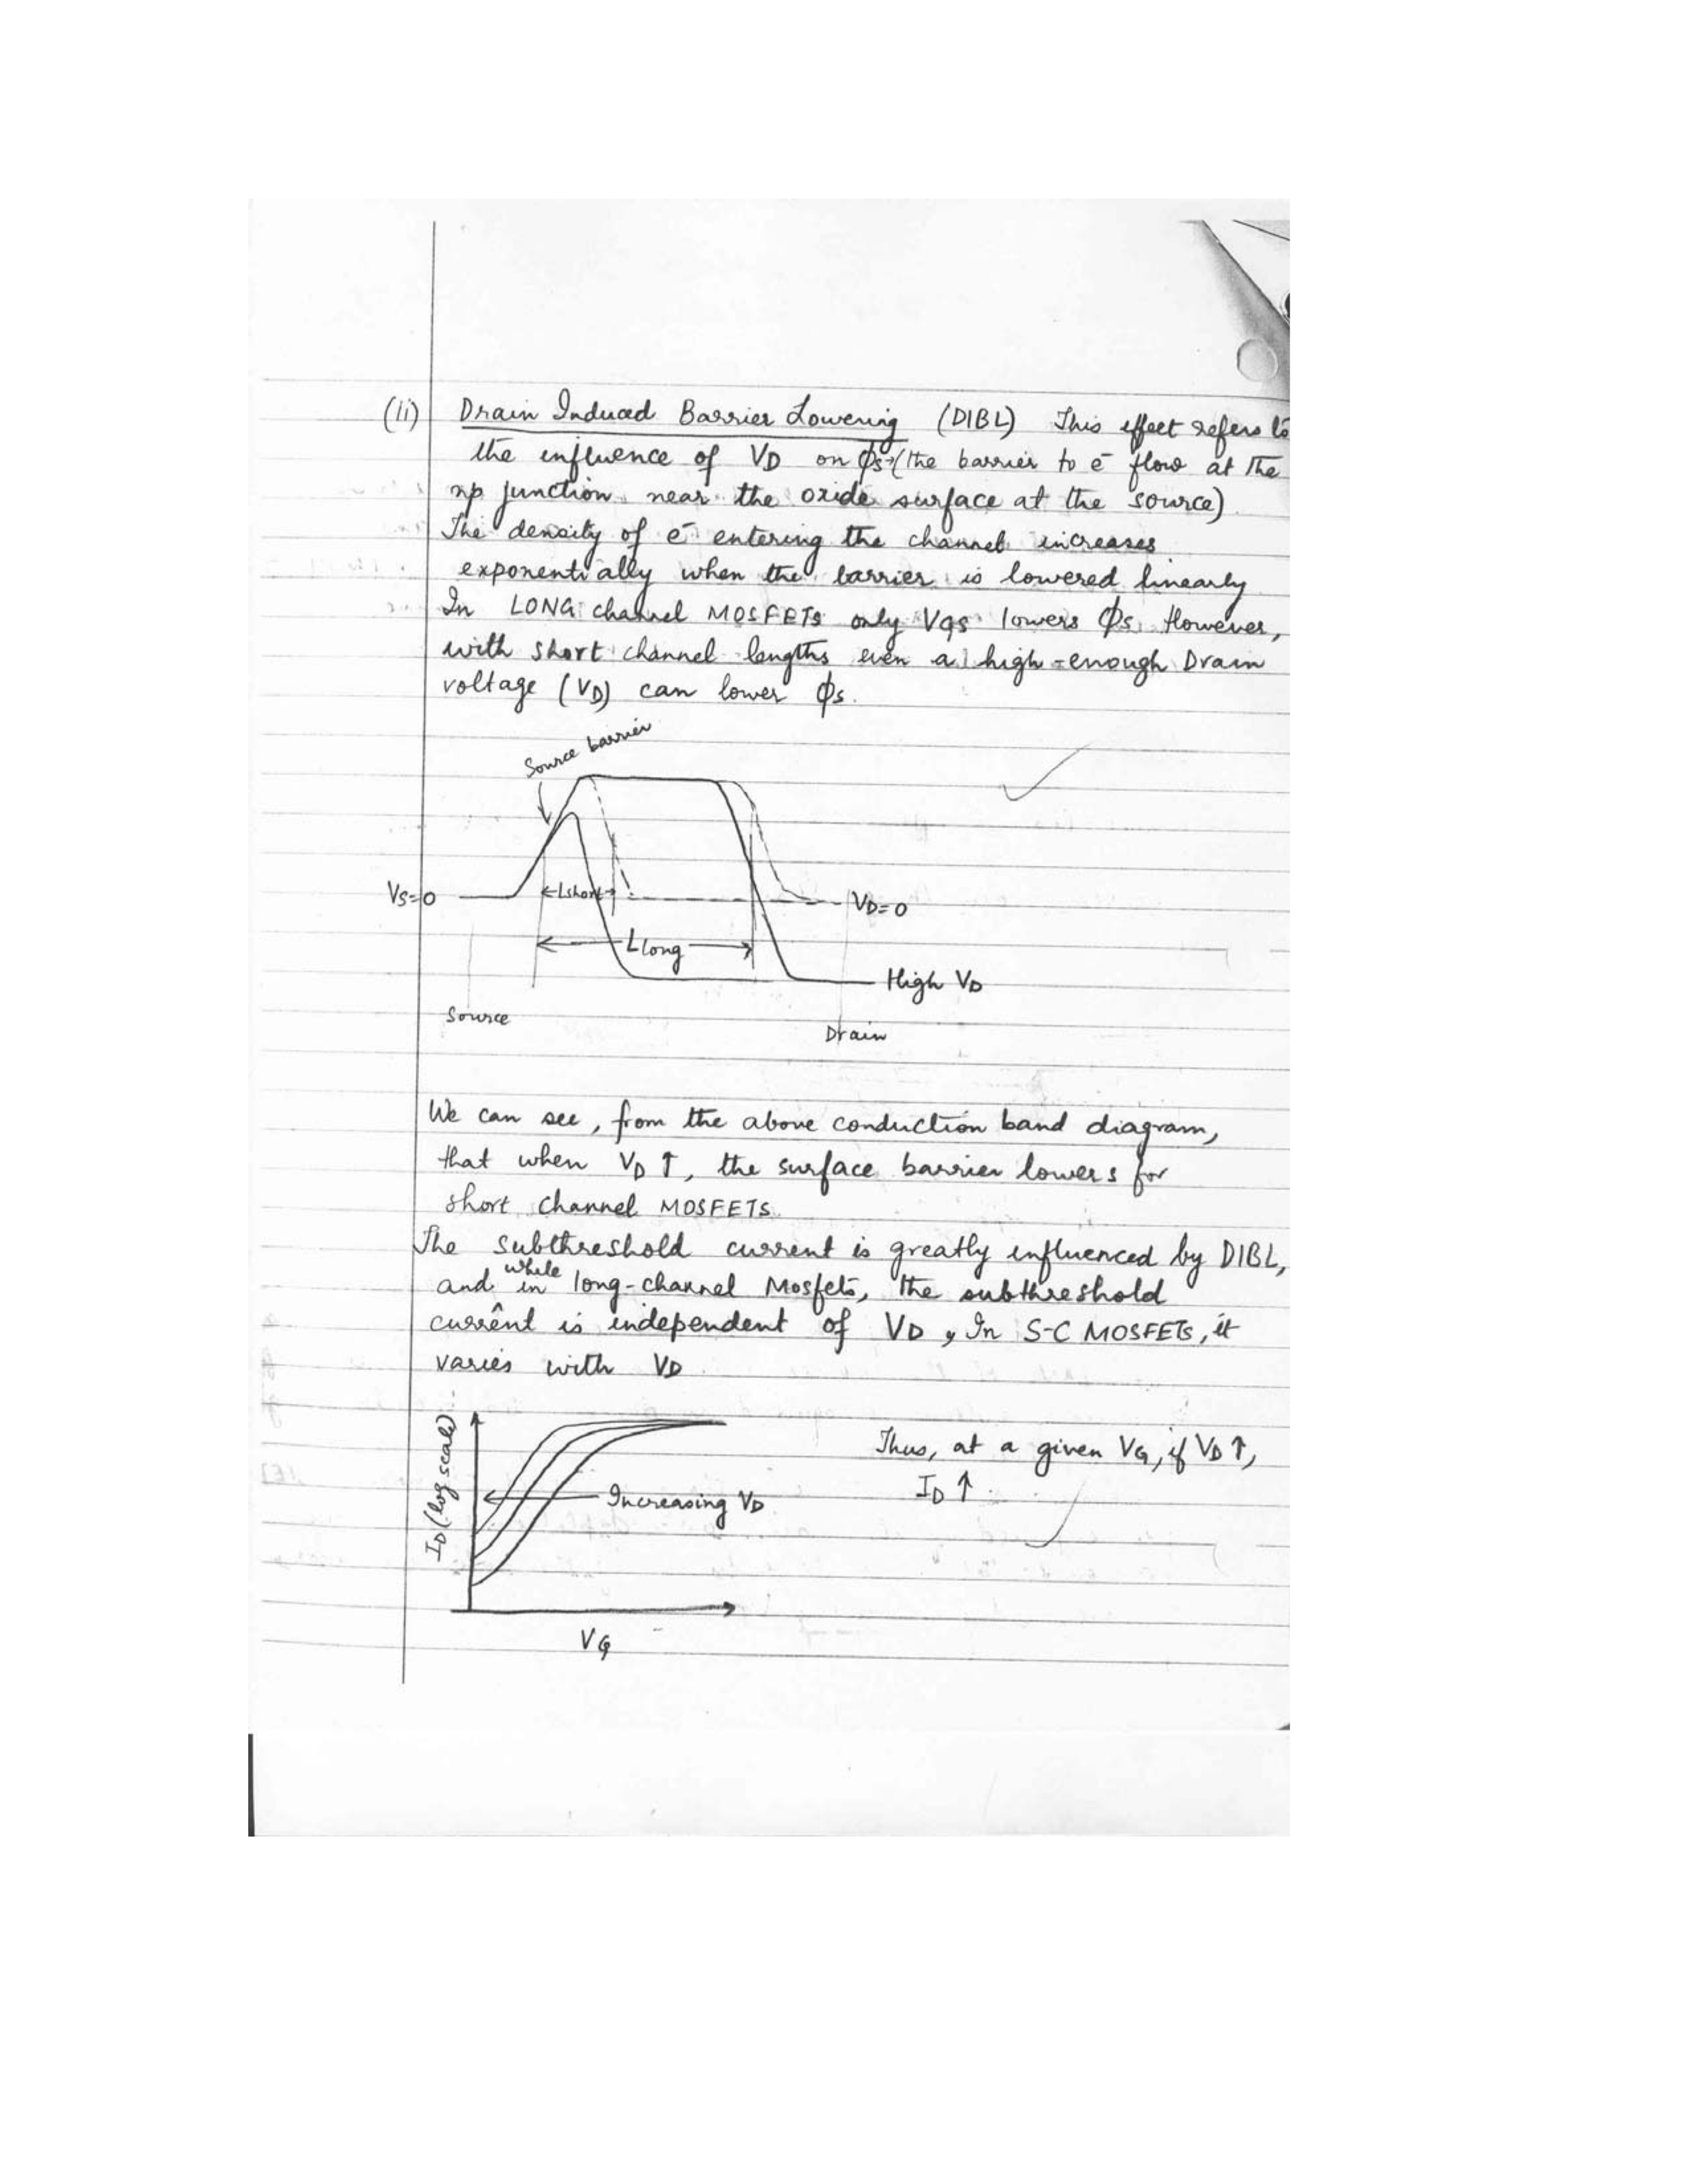 (ii) Drain Induced Barrier Lowering (DIBL) This effect refers to
the influence of VD on ϕs→(the barrier to e⁻ flow at the
np junction near the oxide surface at the source)
The density of e⁻ entering the channel increases
exponentially when the barrier is lowered linearly
In LONG channel MOSFETs only VGS lowers ϕs. However,
with short channel lengths even a high-enough Drain
voltage (VD) can lower ϕs.
Source barrier
VS=0
←Lshort→
VD=0
←Llong→
High VD
Source
Drain
We can see, from the above conduction band diagram,
that when VD ↑, the surface barrier lowers for
short channel MOSFETS.
The subthreshold current is greatly influenced by DIBL,
and while in long-channel Mosfets, the subthreshold
current is independent of VD, In S-C MOSFETs, it
varies with VD
ID (log scale)
Increasing VD
VG
Thus, at a given VG, if VD ↑,
ID ↑.